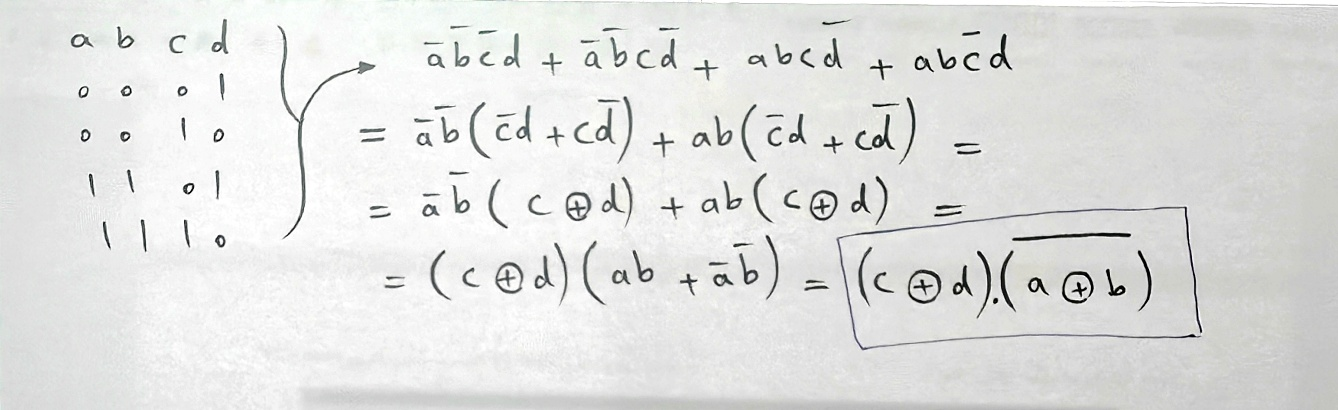 a b c d
0 0 0 1
0 0 1 0
1 1 0 1
1 1 1 0
a̅b̅c̅d + a̅b̅cd̅ + abcd̅ + abc̅d
= a̅b̅(c̅d + cd̅) + ab(c̅d + cd̅) =
= a̅b̅(c⊕d) + ab(c⊕d) =
= (c⊕d)(ab + a̅b̅) = (c⊕d).(a̅ ̅⊕̅ ̅b̅)